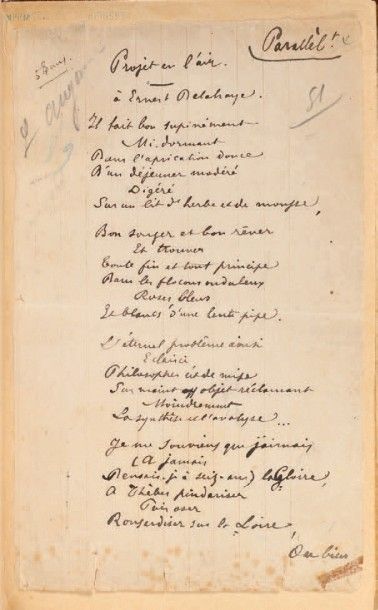 Parallèlt
Projet en l'air.
à Ernest Delahaye.
51
Il fait bon supinément
Mi-dormant
Dans l'aprication douce
D'un déjeuner modéré
Digéré
Sur un lit d'herbe et de mousse,
Bon songer et bon rêver
Et trouver
Toute fin et tout principe
Dans les flocons onduleux
Roses bleus
Et blancs d'une lente pipe.
L'éternel problème ainsi
Eclairci
Philosopher est de mise
Sur maint objet réclamant
Moindrement
La synthèse et l'analyse...
Je me souviens que j'aimais
(A jamais
Pensais-je à seize ans) la Gloire,
A Thèbes pindariser
Puis oser
Ronsardiser sur la Loire,
Ou bien